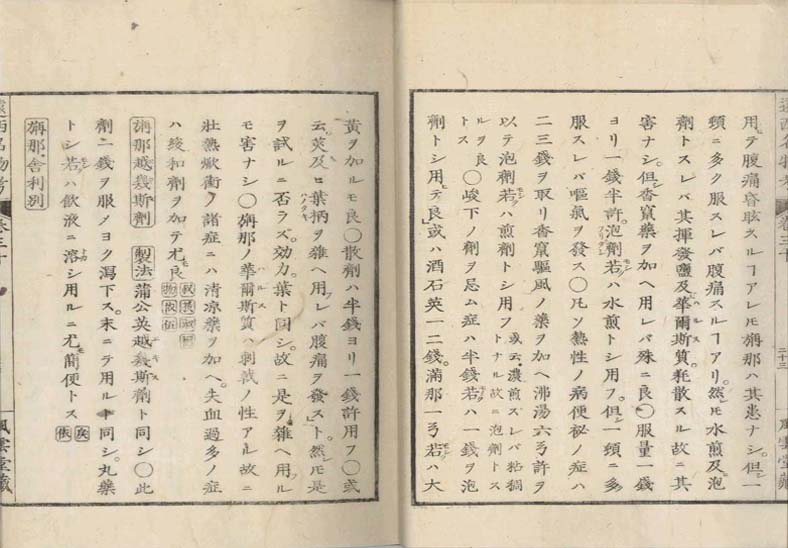 遠西名物考 卷三十 二十三 風雲堂藏
用テ腹痛昏眩スルヿアレ𪜈旃那ハ其患ナシ。但シ一
頓ニ多ク服スレバ腹痛スルヿアリ。然𪜈水煎及泡
劑トスレバ其揮發鹽及華爾斯質。耗散スル故ニ其
害ナシ。但シ香竄藥ヲ加ヘ用レバ殊ニ良〇服量一錢
ヨリ一錢半許。泡劑若ハ水煎トシ用フ。但一頓ニ多
服スレバ嘔氣ヲ發ス〇凡ソ熱性ノ病便祕ノ症ハ
二三錢ヲ取リ香竄驅風ノ藥ヲ加ヘ沸湯六弓許ヲ
以テ泡劑若ハ煎劑トシ用フ 或云濃煎スレバ粘稠トナル故ニ泡劑トス
ルヲ良〇峻下ノ劑ヲ忌ム症ハ半錢若ハ一錢ヲ泡
劑トシ用テ良」或ハ酒石英一二錢。滿那一弓若ハ大
黃ヲ加ルモ良〇散劑ハ半錢ヨリ一錢許用フ〇或
云莢及ヒ葉柄ヲ雜ヘ用レバ腹痛ヲ發スト。然𪜈是
ヲ試ルニ否ラズ。効力。葉ト同シ。故ニ是ヲ雜ヘ用ル
モ害ナシ〇旃那ノ華爾斯質ハ刺戟ノ性アル故ニ
壯熱焮衝ノ諸症ニハ清凉藥ヲ加ヘ。失血過多ノ症
ハ緩和劑ヲ加テ尤良
旃那越幾斯劑 製法蒲公英越幾斯劑ト同シ〇此
劑二錢ヲ服メヨク瀉下ス。末ニテ用ルト同シ。丸藥
トシ若ハ飲液ニ溶シ用ルニ尤簡便トス
旃那舍利別
遠西名物考 卷三十 風雲堂藏